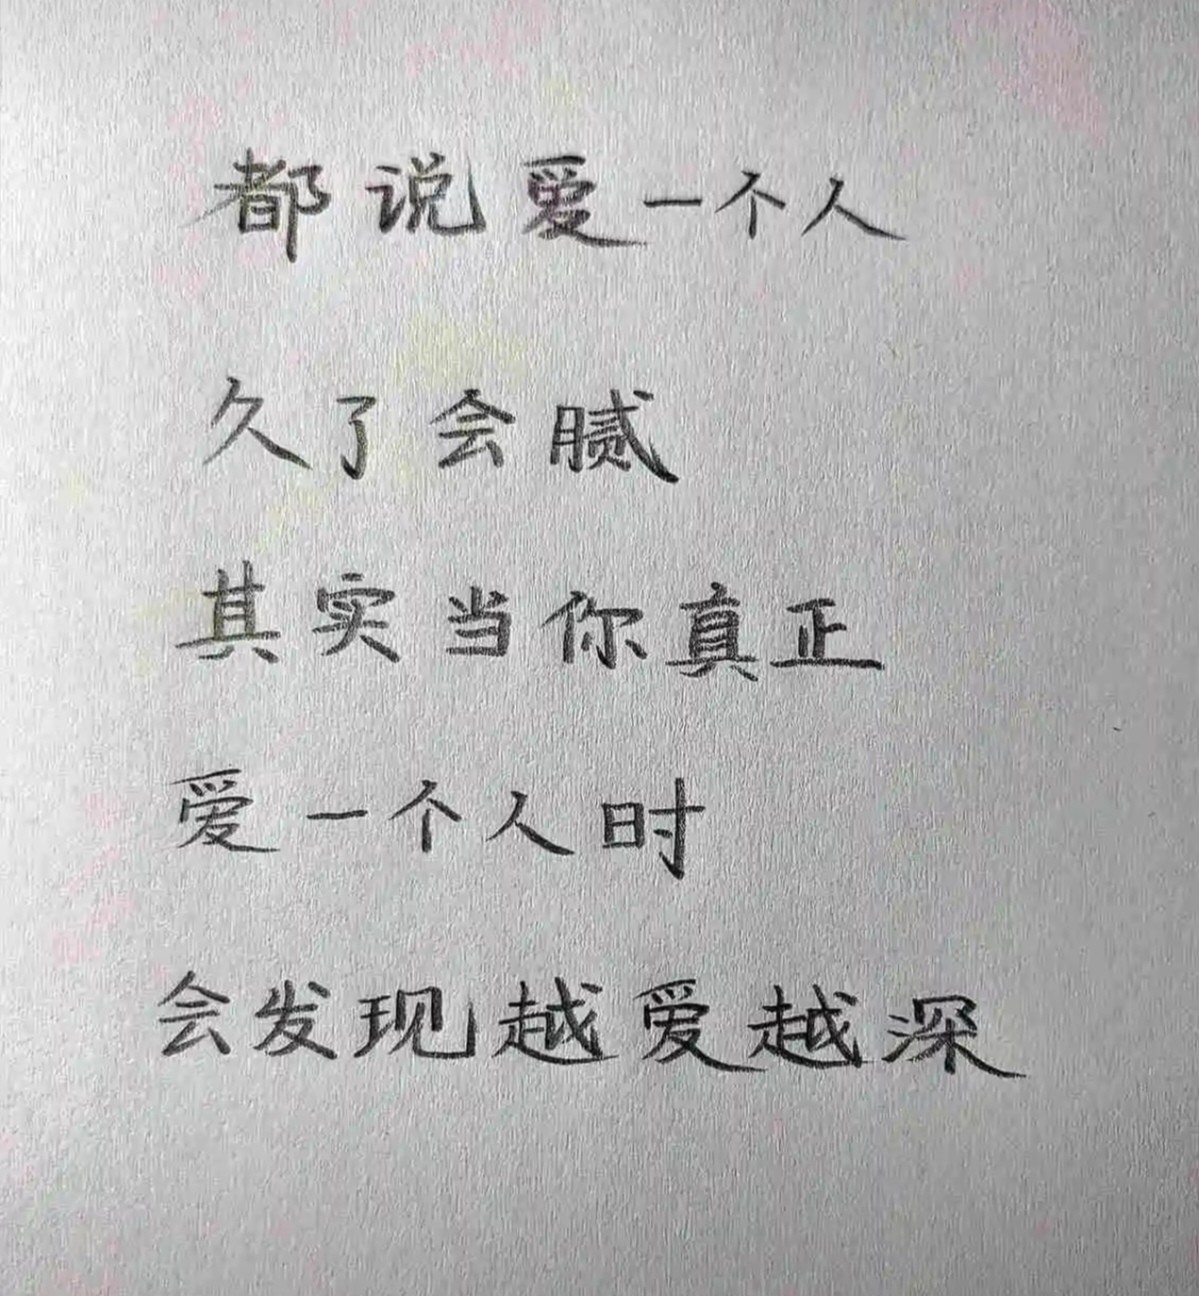 都说爱一个人
久了会腻
其实当你真正
爱一个人时
会发现越爱越深